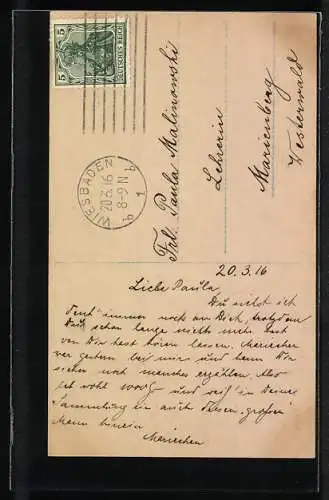 5 5
DEUTSCHES REICH
WIESBADEN
20.3.16
8-9 N
b 1 b
Frl. Paula Malinowski
Lehrerin
Marienberg
Westerwald
20.3.16
Liebe Paula,
Du siehst ich
denk' immer noch an Dich, trotzdem
Du schon lange nichts mehr hast
von Dir hast hören lassen. Mariechen
war gestern bei mir und kann Dir
sicher noch manches erzählen. Also
leb wohl und in Deine
Sammlung ein auch diesen großen
Mann hinein
Mariechen